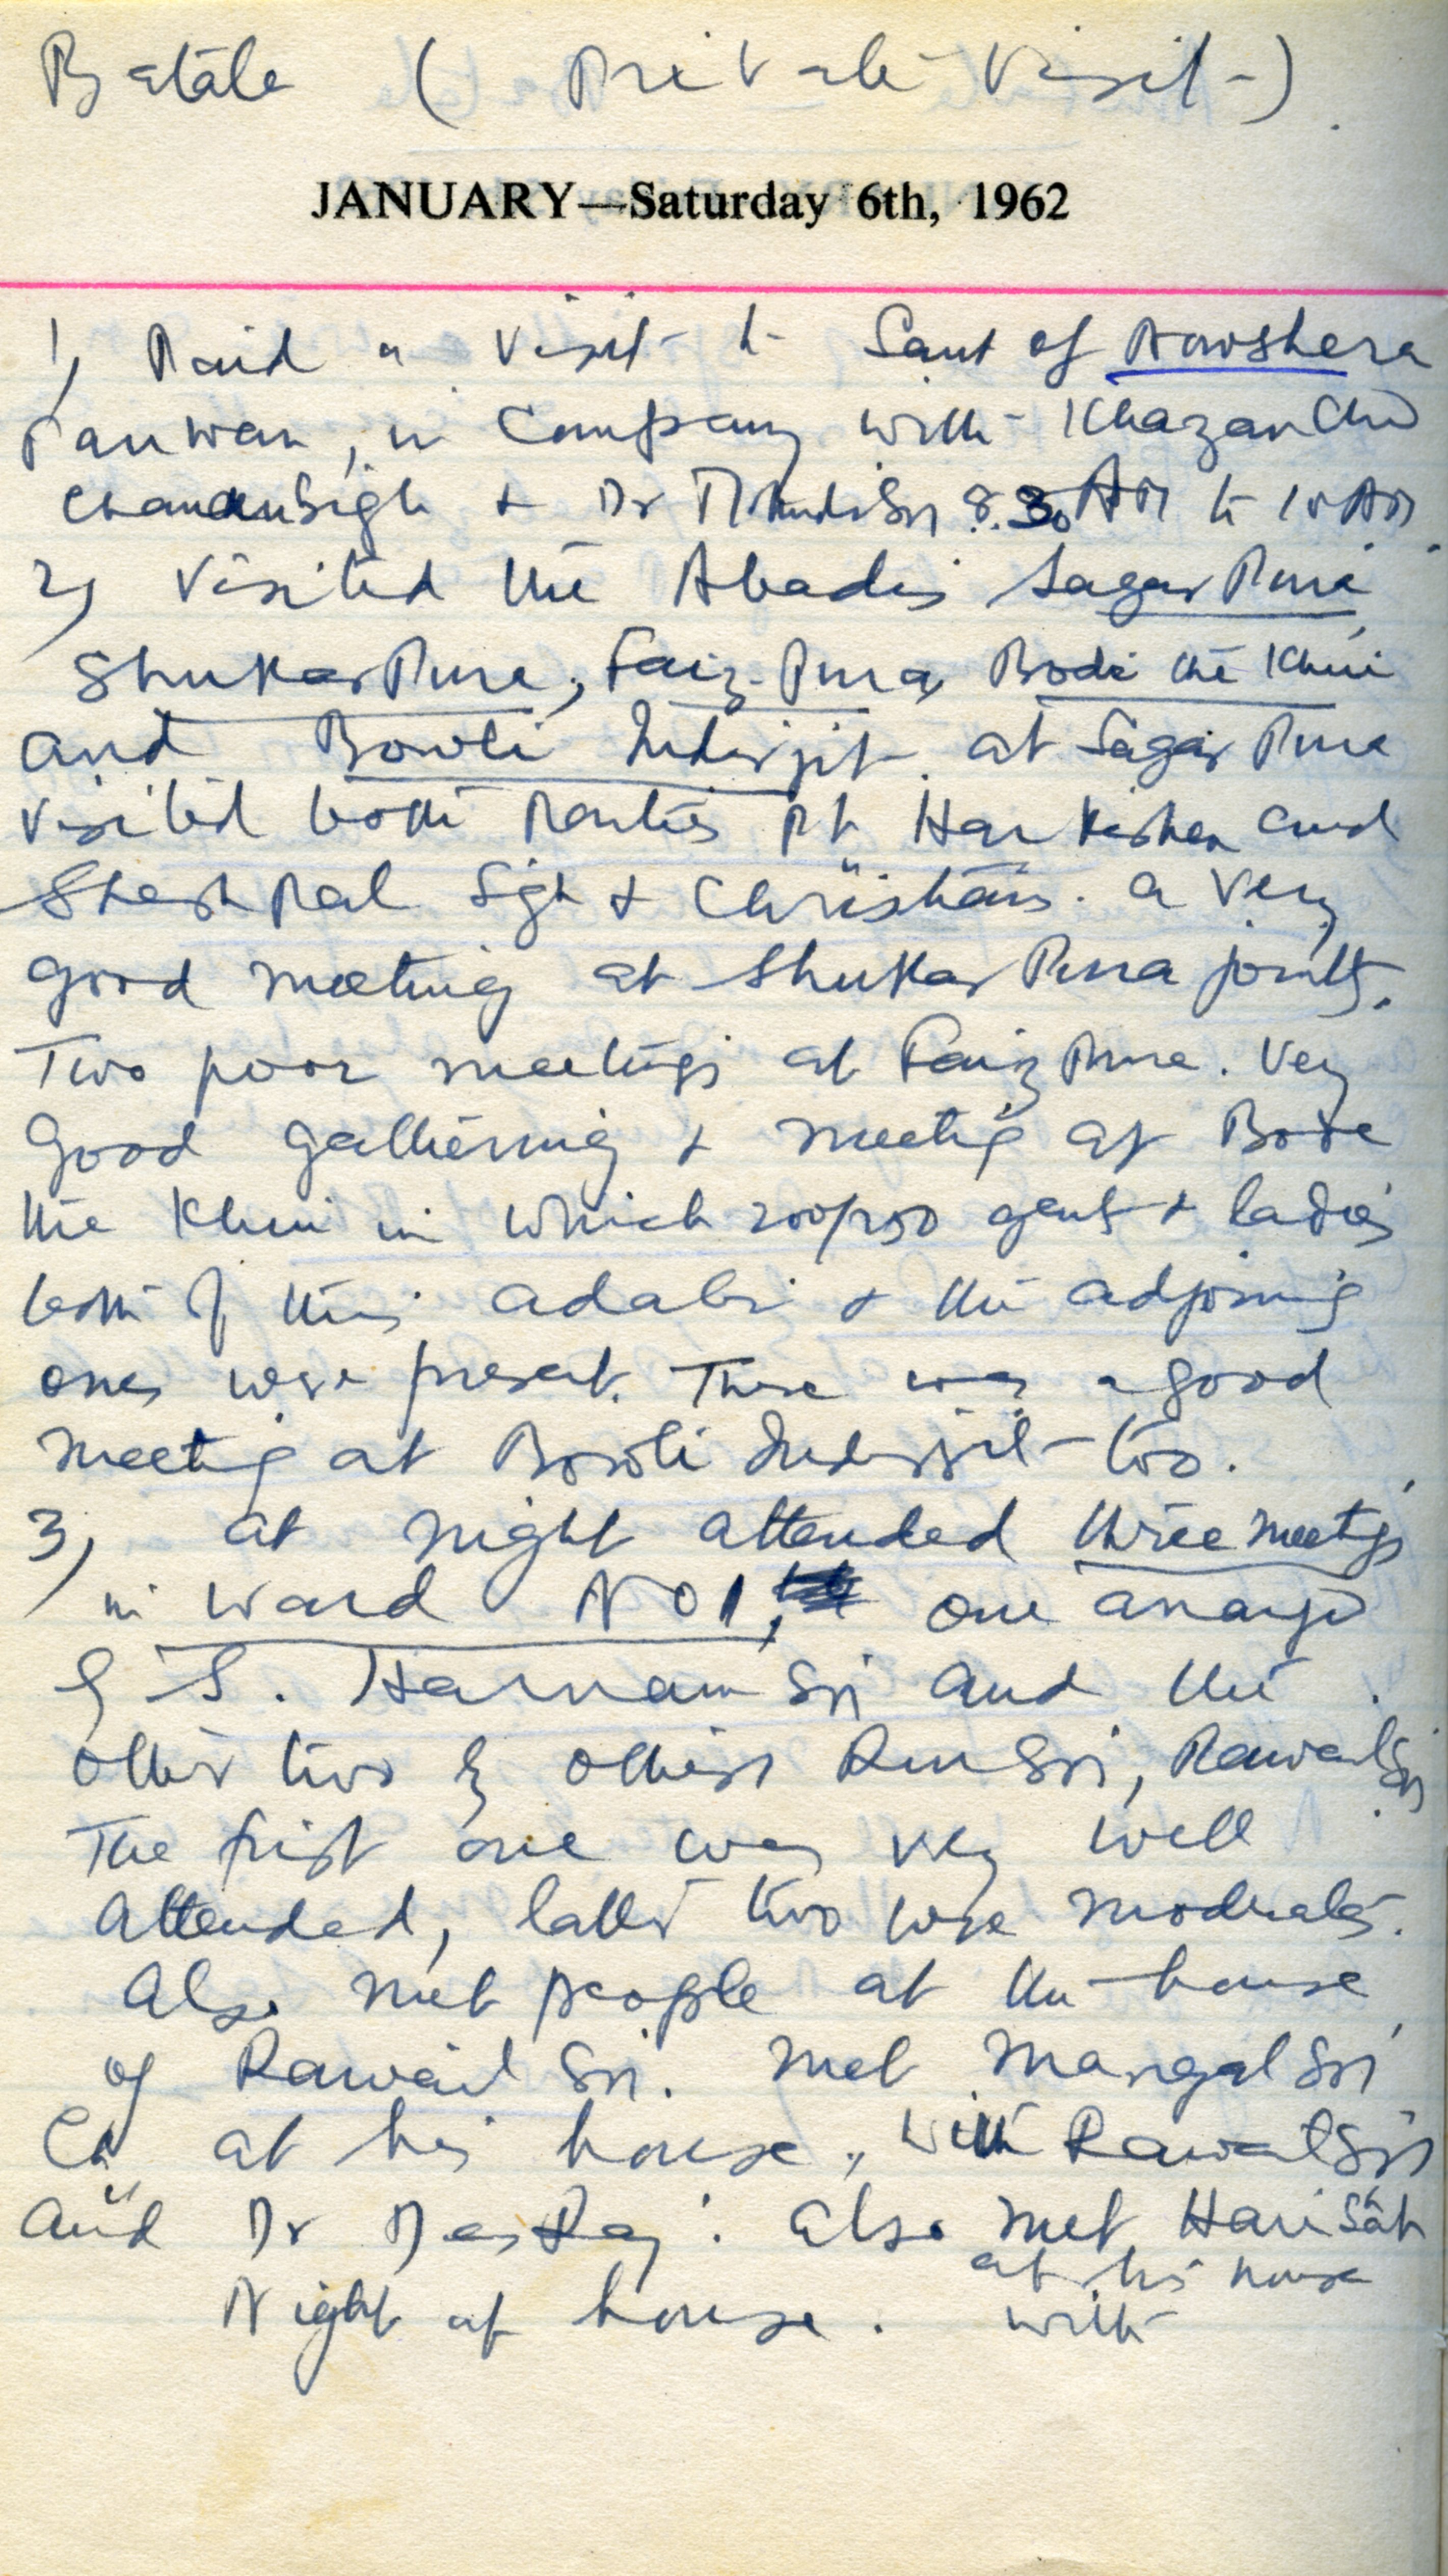 Batala ( Private Visit )
JANUARY—Saturday 6th, 1962
1) Paid a visit to Sant of Nowshera
in Company with Khazanchi
Chanan Singh & Dr 8.30 AM to 10 AM
2) Visited the Abadis Sagar Pura
Shukar Pura, Faiz Pura, Bode the Khui
and Bowli Inderjit. at Sagar Pura
visited both parties Pt Harkishen and
Sher Pal Sgh & Christians. a very
good meeting at Shukar Pura jointly.
Two poor meetings at Faiz Pura. Very
Good gathering & meeting at Bode
the Khui in which 200/250 gents & ladies
both of this adabi & the adjoining
ones were present. There was a good
meeting at Bowli Inderjit too.
3) at night attended three meetgs
in ward No 1, one arranged
by S. Harnam Sn and the
other two by others Sn, Rawail Sn
The first one was very well
attended, latter two were moderate.
Also met people at the house
of Rawail Sn. met Mangal Sn
at his house, with Rawail Sn
and Dr Des Raj. Also met Hari Sah
at his house
Night at house. with